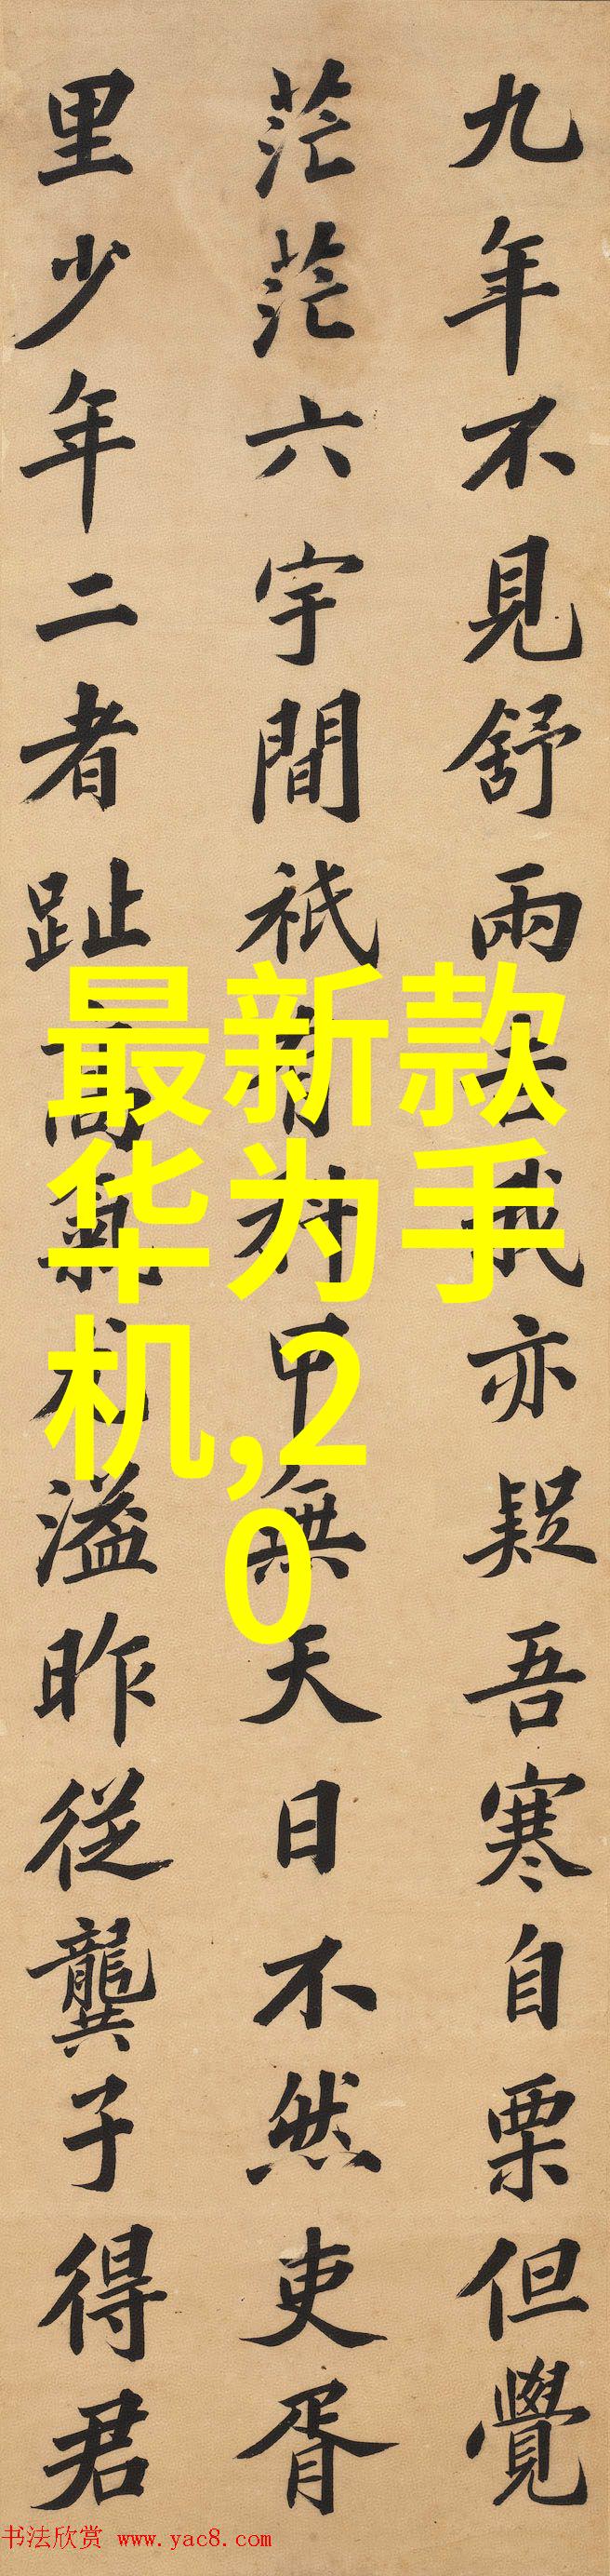 九年不見舒兩去我亦疑吾寒自栗但覺
茫茫六宇間祇有科甲無天日不然吏胥
里少年二者趾高氣尤溢昨從龔子得君
最新款
华为手
机,2
0
书法欣赏 www.yac8.com